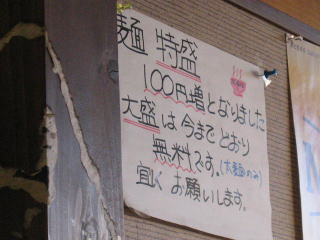 麺 特盛
100円増となりました
大盛は今までどおり
無料です。(太麺のみ)
宜しくお願いします。